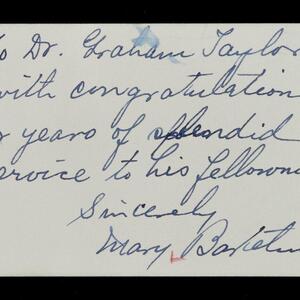 to Dr. Graham Taylor
with congratulation
r years of splendid
ervice to his fellow
Sincerely
Mary